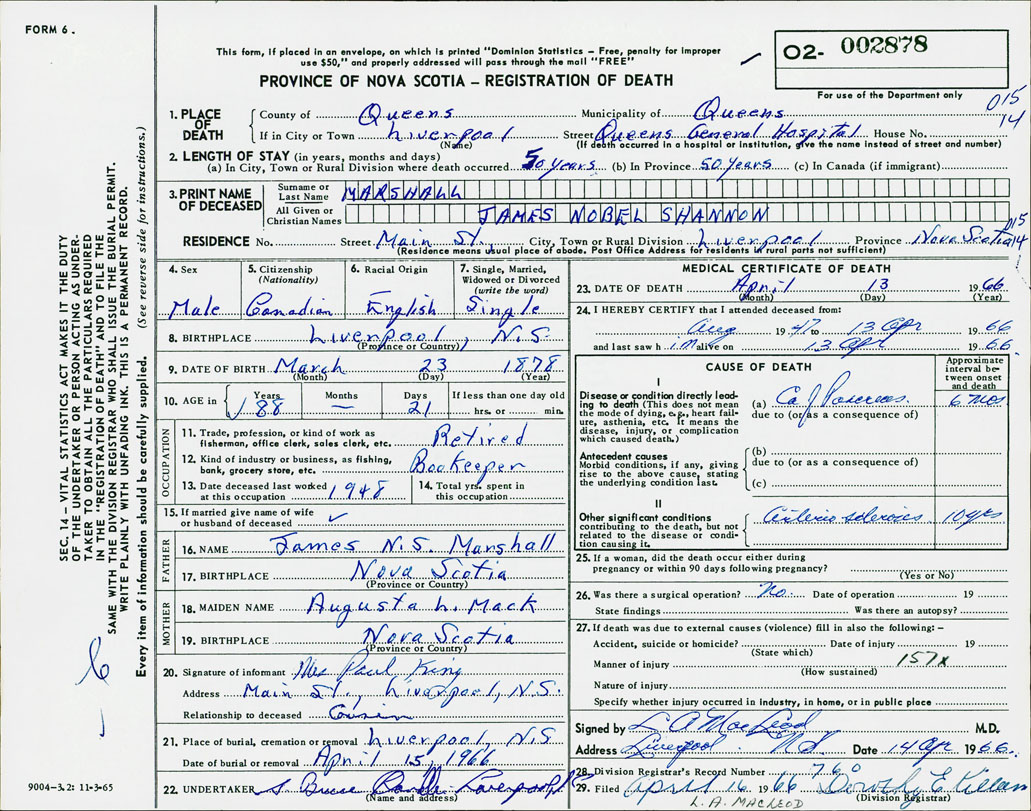 FORM 6.
This form, if placed in an envelope, on which is printed "Dominion Statistics – Free, penalty for improper
use $50," and properly addressed will pass through the mail "FREE"
PROVINCE OF NOVA SCOTIA – REGISTRATION OF DEATH
O2- 002878
For use of the Department only
015
14
1. PLACE OF DEATH
County of Queens Municipality of Queens
If in City or Town Liverpool Street Queens General Hospital House No.
(Name) (If death occurred in a hospital or institution, give the name instead of street and number)
2. LENGTH OF STAY (in years, months and days)
(a) In City, Town or Rural Division where death occurred 50 years (b) In Province 50 years (c) In Canada (if immigrant)
3. PRINT NAME OF DECEASED
Surname or Last Name MARSHALL
All Given or Christian Names JAMES NOBEL SHANNON
015
14
RESIDENCE No. Street Main St., City, Town or Rural Division Liverpool Province Nova Scotia
(Residence means usual place of abode. Post Office Address for residents in rural parts not sufficient)
4. Sex
Male
5. Citizenship
(Nationality)
Canadian
6. Racial Origin
English
7. Single, Married,
Widowed or Divorced
(write the word)
Single
8. BIRTHPLACE Liverpool, N.S.
(Province or Country)
9. DATE OF BIRTH March 23 1878
(Month) (Day) (Year)
10. AGE in
Years Months Days If less than one day old
88 — 21 hrs. or min.
OCCUPATION
11. Trade, profession, or kind of work as
fisherman, office clerk, sales clerk, etc. Retired
12. Kind of industry or business, as fishing,
bank, grocery store, etc. Bookeeper
13. Date deceased last worked
at this occupation 1948
14. Total yrs. spent in
this occupation
15. If married give name of wife
or husband of deceased
FATHER
16. NAME James N.S. Marshall
17. BIRTHPLACE Nova Scotia
(Province or Country)
MOTHER
18. MAIDEN NAME Augusta L. Mack
19. BIRTHPLACE Nova Scotia
(Province or Country)
20. Signature of informant Mrs Paul King
Address Main St., Liverpool, N.S.
Relationship to deceased Cousin
21. Place of burial, cremation or removal Liverpool, N.S.
Date of burial or removal April 15, 1966
22. UNDERTAKER S Bruce Liverpool
(Name and address)
MEDICAL CERTIFICATE OF DEATH
23. DATE OF DEATH April 13 1966
(Month) (Day) (Year)
24. I HEREBY CERTIFY that I attended deceased from:
Aug 1947 to 13 Apr 1966
and last saw him alive on 13 Apr 1966
CAUSE OF DEATH
Approximate interval between onset and death
I
Disease or condition directly leading to death (This does not mean the mode of dying, e.g., heart failure, asthenia, etc. It means the disease, injury, or complication which caused death.)
(a) Ca of Pancreas. 6 mos
due to (or as a consequence of)
Antecedent causes
Morbid conditions, if any, giving rise to the above cause, stating the underlying condition last.
(b)
due to (or as a consequence of)
(c)
II
Other significant conditions
contributing to the death, but not related to the disease or condition causing it.
Arterio sclerosis 10 yrs
25. If a woman, did the death occur either during
pregnancy or within 90 days following pregnancy?
(Yes or No)
26. Was there a surgical operation? No. Date of operation 19
State findings Was there an autopsy?
27. If death was due to external causes (violence) fill in also the following: –
Accident, suicide or homicide? Date of injury 19
(State which)
Manner of injury 157x
(How sustained)
Nature of injury
Specify whether injury occurred in industry, in home, or in public place
Signed by L A MacLeod M.D.
Address Liverpool N.S. Date 14 Apr 1966.
28. Division Registrar's Record Number 760
29. Filed April 16 1966 Dorothy E. Killam
L. A. MACLEOD (Division Registrar)
SEC. 14 – VITAL STATISTICS ACT MAKES IT THE DUTY
OF THE UNDERTAKER OR PERSON ACTING AS UNDER-
TAKER TO OBTAIN ALL THE PARTICULARS REQUIRED
IN THE "REGISTRATION OF DEATH" AND TO FILE THE
SAME WITH THE DIVISION REGISTRAR WHO SHALL ISSUE THE BURIAL PERMIT.
WRITE PLAINLY WITH UNFADING INK. THIS IS A PERMANENT RECORD.
Every item of information should be carefully supplied. (See reverse side for instructions.)
6
9004-3.2: 11-3-65